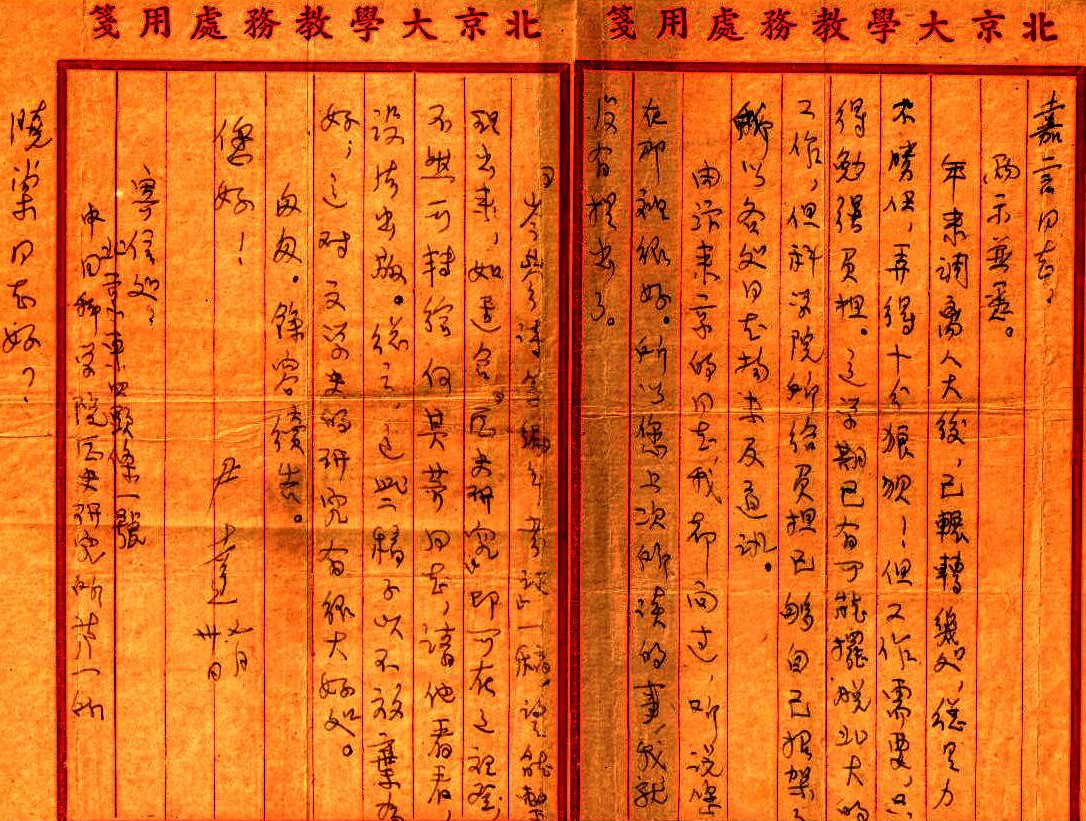 北京大學教務處用箋
嘉言同志：
兩示並悉。
年来調离人大後，已輾轉幾处，總是力
不勝任，弄得十分狼狈！但工作需要，只
得勉强負担。这学期已有可能擺脱北大的
工作，但科学院所给負担已够自己招架了
各处同志均未及道谢。
由 来京的同志，我都问过，听说您
在那裡很好。所以您上次所谈的事，我就
没有提出了。
北京大學教務處用箋
一稿，望能整
理出来，如适合“历史研究”即可在这裡登，
不然可转给何其芳同志，請他看看，
设法出版。總之，这些稿子以不放棄为
好，这对文学史的研究有很大好处。
匆匆。餘容續告。
您好！
尹達 七月
卅日
寄信处：
北京东四头条一號
中国科学院历史研究所第一所
曉棠同志好？